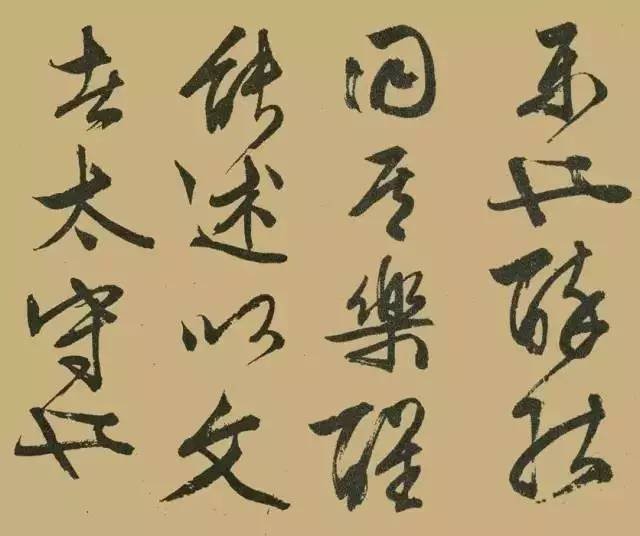 乐也醉能
同其樂醒
能述以文
者太守也